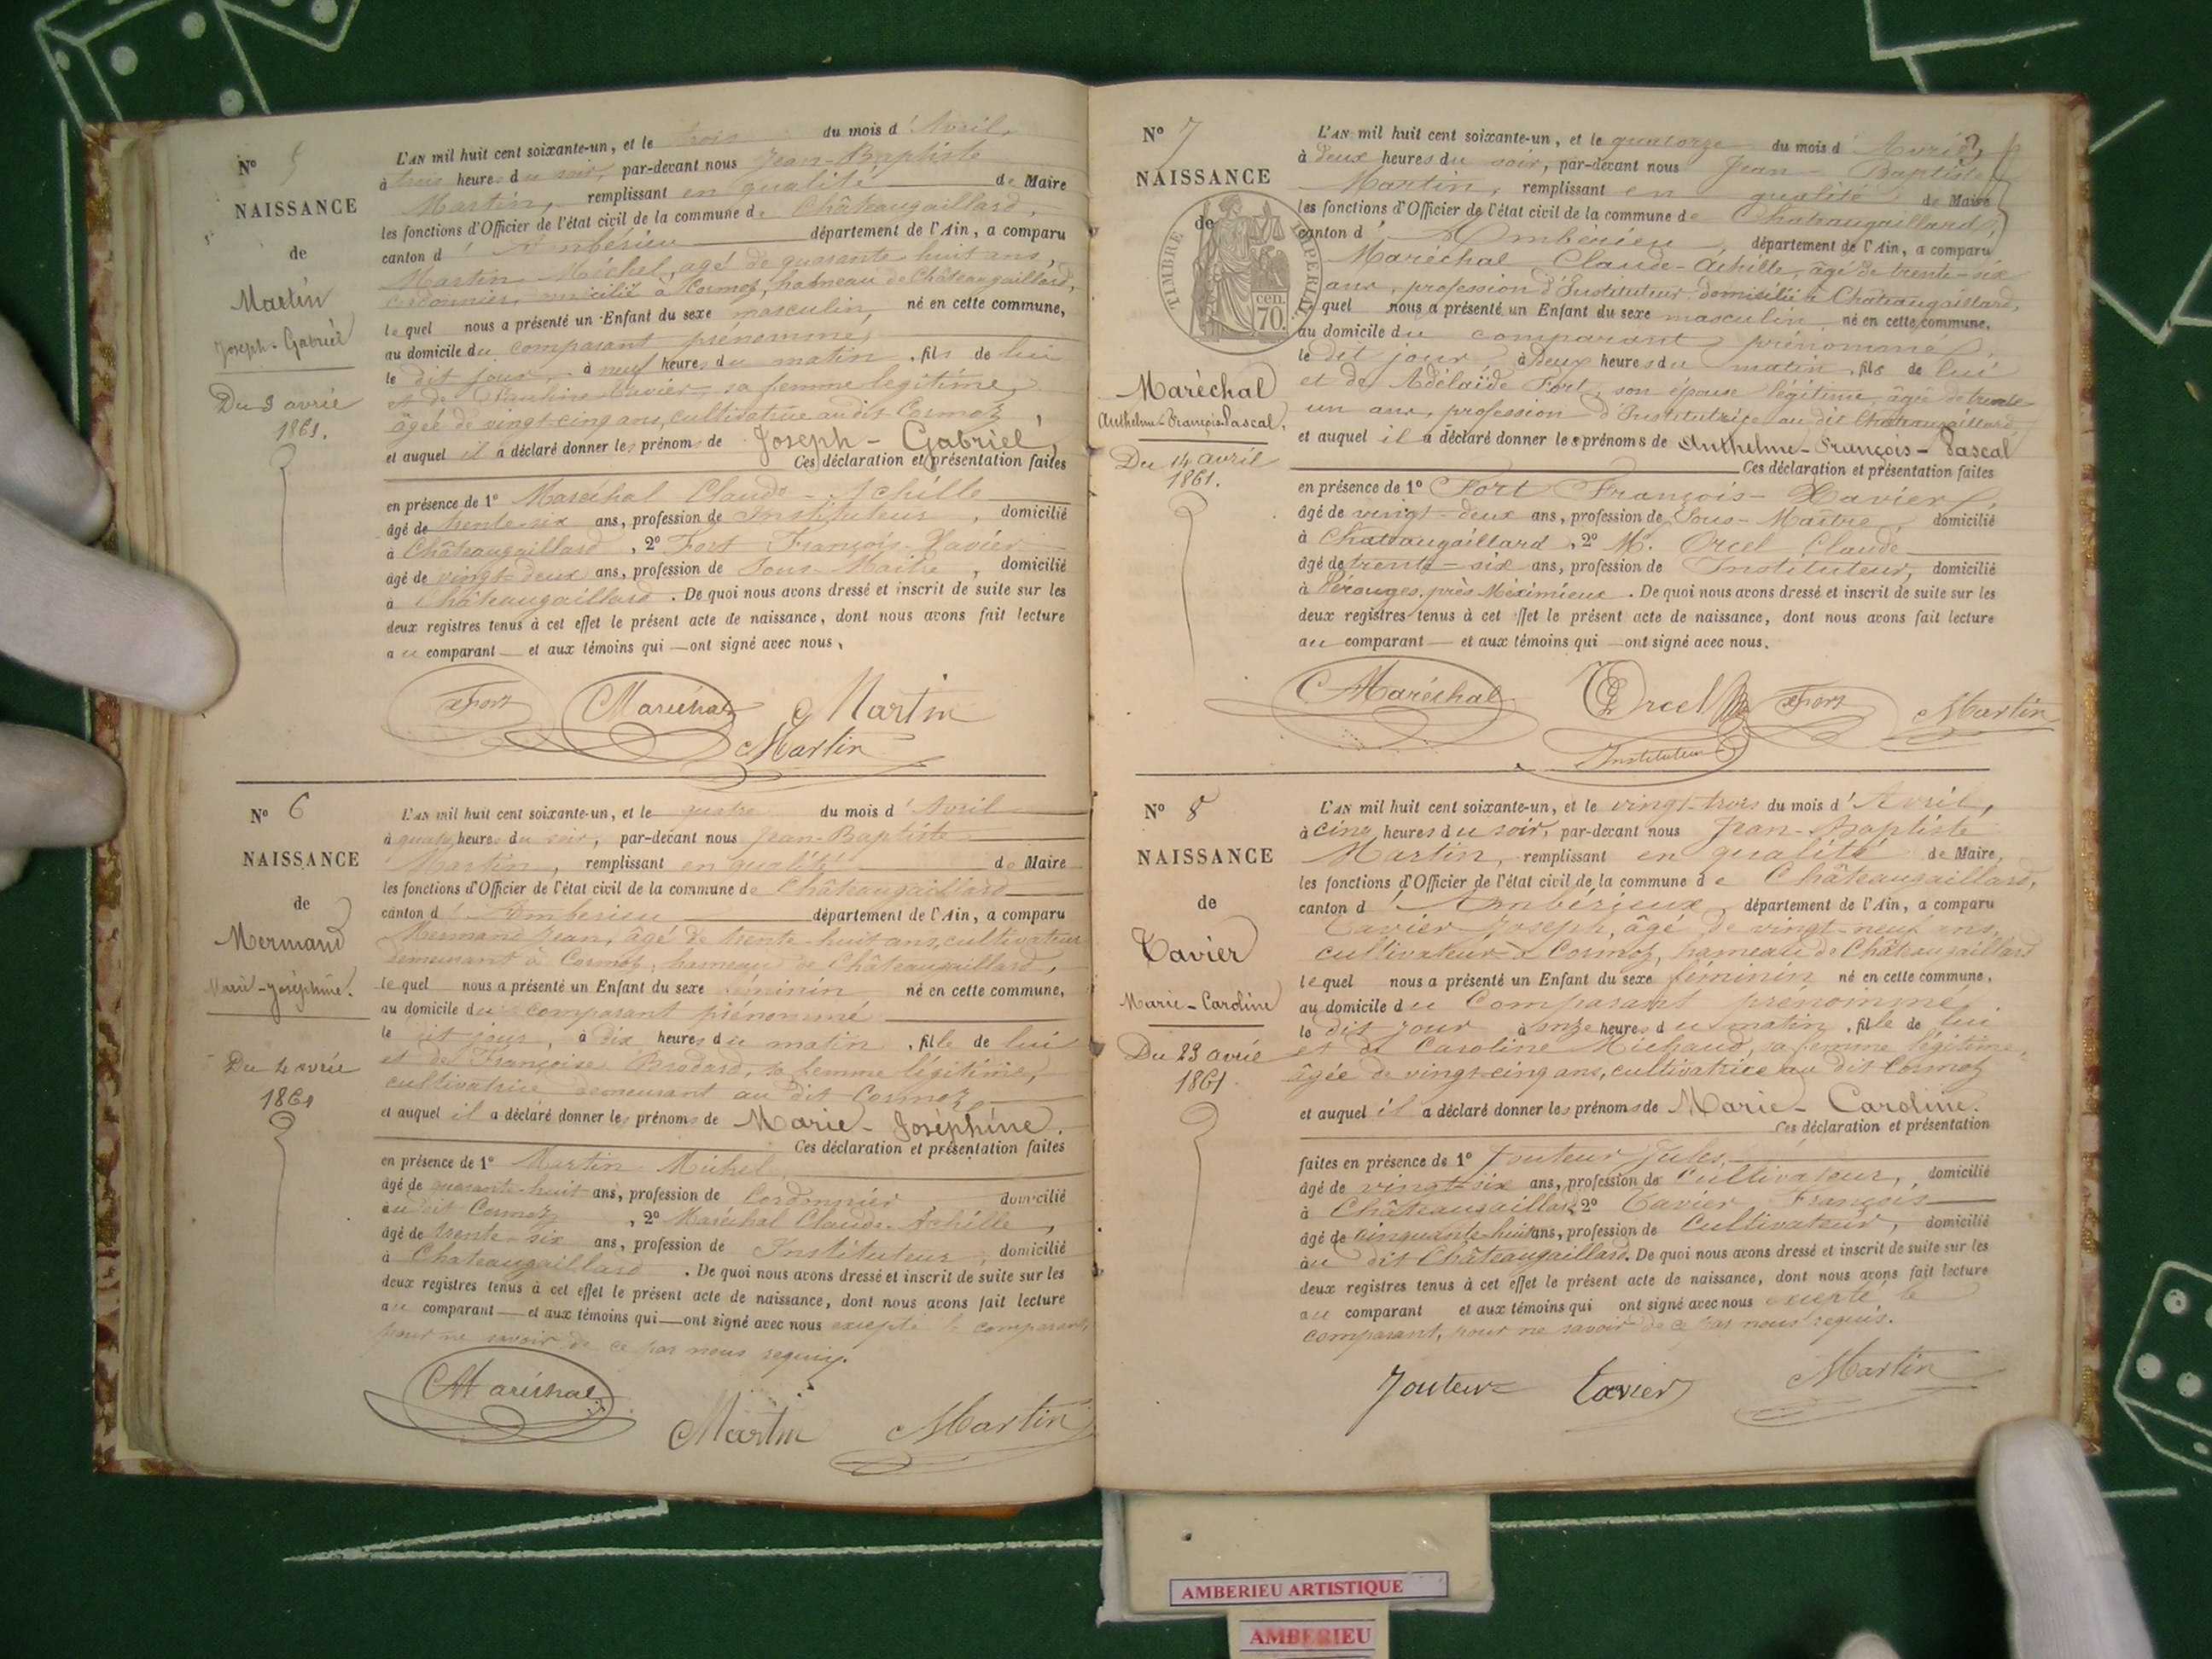 N° 5
NAISSANCE
de
Martin
Joseph-Gabriel
Du 3 avril
1861.
L'AN mil huit cent soixante-un, et le trois du mois d'Avril,
à trois heures du soir, par-devant nous Jean-Baptiste
Martin, remplissant en qualité de Maire
les fonctions d'Officier de l'état civil de la commune de Châteaugaillard,
canton d'Ambérieu département de l'Ain, a comparu
Martin Michel, agé de quarante huit ans,
cordonnier, domicilié à Cormoz, hameau de Châteaugaillard,
lequel nous a présenté un Enfant du sexe masculin, né en cette commune,
au domicile du comparant prénommé,
le dit jour à neuf heures du matin, fils de lui
et de Pauline Cavier, sa femme legitime,
âgée de vingt-cinq ans, cultivatrice au dit Cormoz,
et auquel il a déclaré donner les prénoms de Joseph-Gabriel,
Ces déclaration et présentation faites
en présence de 1° Maréchal Claude-Achille
âgé de trente-six ans, profession de Instituteur, domicilié
à Châteaugaillard, 2° Fort François-Xavier
âgé de vingt-deux ans, profession de Sous-Maître, domicilié
à Châteaugaillard. De quoi nous avons dressé et inscrit de suite sur les
deux registres tenus à cet effet le présent acte de naissance, dont nous avons fait lecture
au comparant et aux témoins qui ont signé avec nous,
Fort Maréchal Martin
Martin
N° 6
NAISSANCE
de
Mermand
Marie-Joséphine.
Du 4 avril
1861
L'AN mil huit cent soixante-un, et le quatre du mois d'Avril
à quatre heures du soir, par-devant nous Jean-Baptiste
Martin, remplissant en qualité de Maire
les fonctions d'Officier de l'état civil de la commune de Châteaugaillard
canton d'Amberieu département de l'Ain, a comparu
Mermand Jean, âgé de trente-huit ans, cultivateur
demeurant à Cormoz, hameau de Châteaugaillard,
lequel nous a présenté un Enfant du sexe féminin né en cette commune,
au domicile du comparant prénommé
le dit jour, à dix heures du matin, fille de lui
et de Françoise Brodard, sa femme légitime,
cultivatrice demeurant au dit Cormoz,
et auquel il a déclaré donner les prénoms de Marie-Joséphine.
Ces déclaration et présentation faites
en présence de 1° Martin Michel
âgé de quarante-huit ans, profession de Cordonnier domicilié
au dit Cormoz, 2° Maréchal Claude-Achille,
âgé de trente-six ans, profession de Instituteur, domicilié
à Chateaugaillard. De quoi nous avons dressé et inscrit de suite sur les
deux registres tenus à cet effet le présent acte de naissance, dont nous avons fait lecture
au comparant et aux témoins qui ont signé avec nous excepté le comparant,
pour ne savoir de ce par nous requis.
Maréchal
Martin Martin
N° 7
NAISSANCE
de
TIMBRE IMPERIAL
70 cen.
Maréchal
Anthelme-François-Pascal,
Du 14 avril
1861.
L'AN mil huit cent soixante-un, et le quatorze du mois d'Avril,
à deux heures du soir, par-devant nous Jean-Baptiste
Martin, remplissant en qualité de Maire
les fonctions d'Officier de l'état civil de la commune de Chateaugaillard,
canton d'Ambérieu, département de l'Ain, a comparu
Maréchal Claude-Achille, âgé de trente-six
ans, profession d'Instituteur domicilié à Châteaugaillard,
lequel nous a présenté un Enfant du sexe masculin, né en cette commune,
au domicile du comparant prénommé,
le dit jour, à deux heures du matin, fils de lui
et de Adélaïde Fort, son épouse légitime, âgée de trente
un ans, profession d'Institutrice au dit Châteaugaillard,
et auquel il a déclaré donner les prénoms de Anthelme-François-Pascal
Ces déclaration et présentation faites
en présence de 1° Fort François-Xavier,
âgé de vingt-deux ans, profession de Sous-Maître, domicilié
à Chateaugaillard, 2° Mr. Orcel Claude
âgé de trente-six ans, profession de Instituteur, domicilié
à Pérouges, près Méximieux. De quoi nous avons dressé et inscrit de suite sur les
deux registres tenus à cet effet le présent acte de naissance, dont nous avons fait lecture
au comparant et aux témoins qui ont signé avec nous.
Maréchal Orcel Fort Martin
Instituteur
N° 8
NAISSANCE
de
Cavier
Marie-Caroline
Du 23 avril
1861.
L'AN mil huit cent soixante-un, et le vingt-trois du mois d'Avril,
à cinq heures du soir, par-devant nous Jean-Baptiste
Martin, remplissant en qualité de Maire,
les fonctions d'Officier de l'état civil de la commune de Châteaugaillard,
canton d'Ambérieux, département de l'Ain, a comparu
Cavier Joseph, âgé de vingt-neuf ans,
cultivateur à Cormoz, hameau de Châteaugaillard
lequel nous a présenté un Enfant du sexe féminin né en cette commune,
au domicile du Comparant prénommé,
le dit jour à onze heures du matin, fille de lui
et de Caroline Michaud, sa femme légitime,
âgée de vingt-cinq ans, cultivatrice au dit Cormoz
et auquel il a déclaré donner les prénoms de Marie-Caroline.
Ces déclaration et présentation
faites en présence de 1° Jouteur Jules,
âgé de vingt-six ans, profession de Cultivateur, domicilié
à Châteaugaillard, 2° Cavier François
âgé de cinquante-huit ans, profession de Cultivateur, domicilié
au dit Châteaugaillard. De quoi nous avons dressé et inscrit de suite sur les
deux registres tenus à cet effet le présent acte de naissance, dont nous avons fait lecture
au comparant et aux témoins qui ont signé avec nous excepté le
comparant, pour ne savoir de ce par nous requis.
Jouteur Cavier Martin
AMBERIEU ARTISTIQUE
AMBERIEU